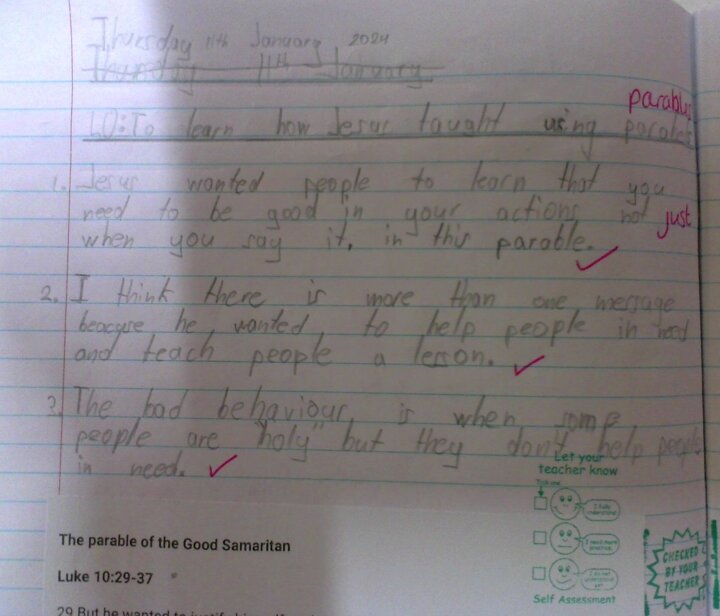 Thursday 11th January 2024
Thursday 11th January
parables
LO: To learn how Jesus taught using parales
1. Jesus wanted people to learn that you
need to be good in your actions not just
when you say it, in this parable.
2. I think there is more than one message
beacuse he wanted to help people in need
and teach people a lesson.
3. The bad behaviour is when some
people are "holy" but they don't help people
in need.
Let your
teacher know
Tick one
I fully
understand
I need more
practice
I do not
understand
yet
Self Assessment
CHECKED
BY YOUR
TEACHER
The parable of the Good Samaritan
Luke 10:29-37
29 But he wanted to justify